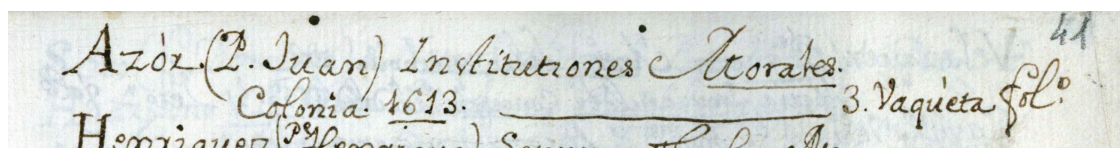 41
Azòr. (P. Juan) Institutiones Morales.
Colonia 1613. 3. Vaquèta fol.º
Henriquez (P.e Henrique)